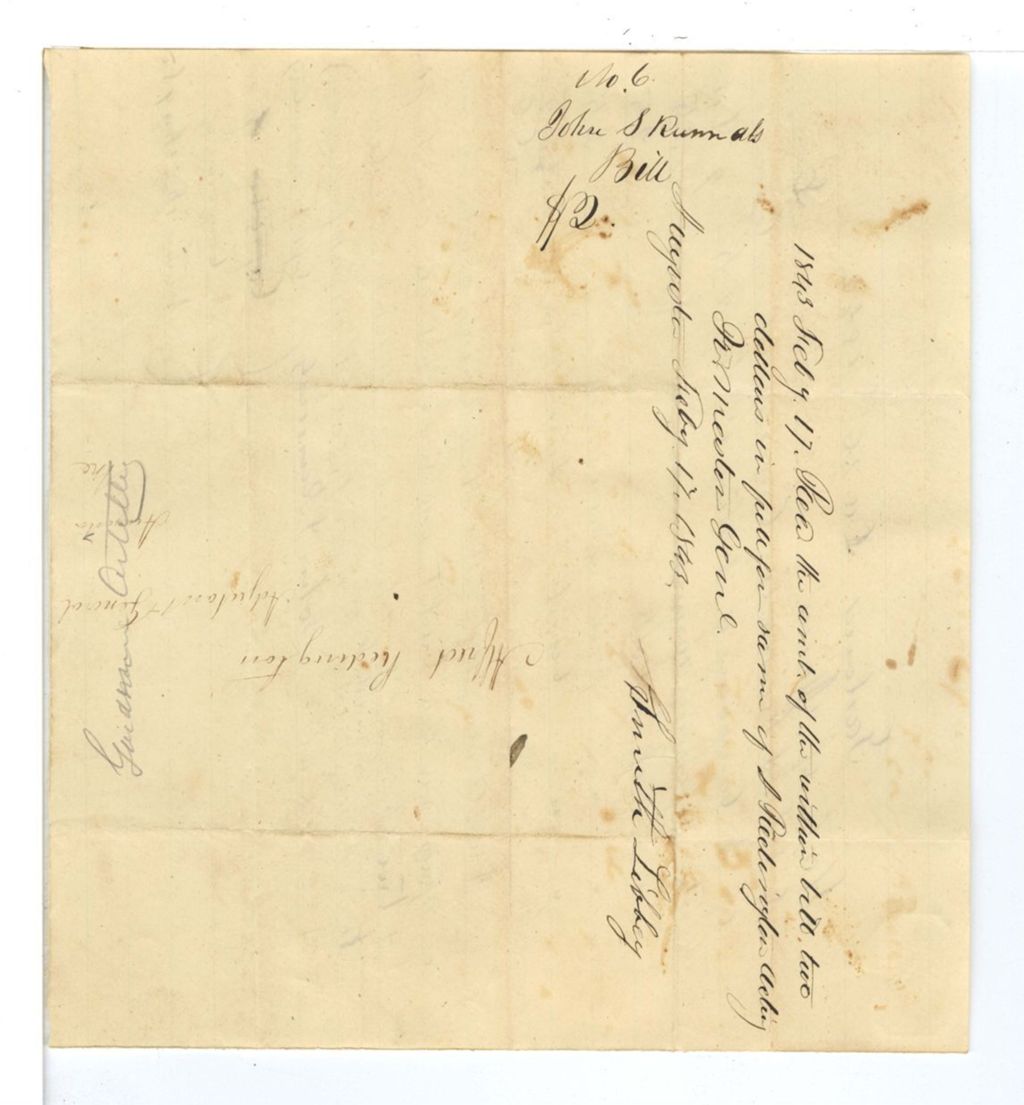 No. 6
John S Runnals
Bill
$2.
1843 Feby. 17. Recd the amt. of the within bill, two
dollars in full for same of A Redington Acting
Qr Master Genl.
Augusta Feby 17. 1843.
Smith Libbey
Alfred Redington
Adjutant General
Augusta
Me
Artillery